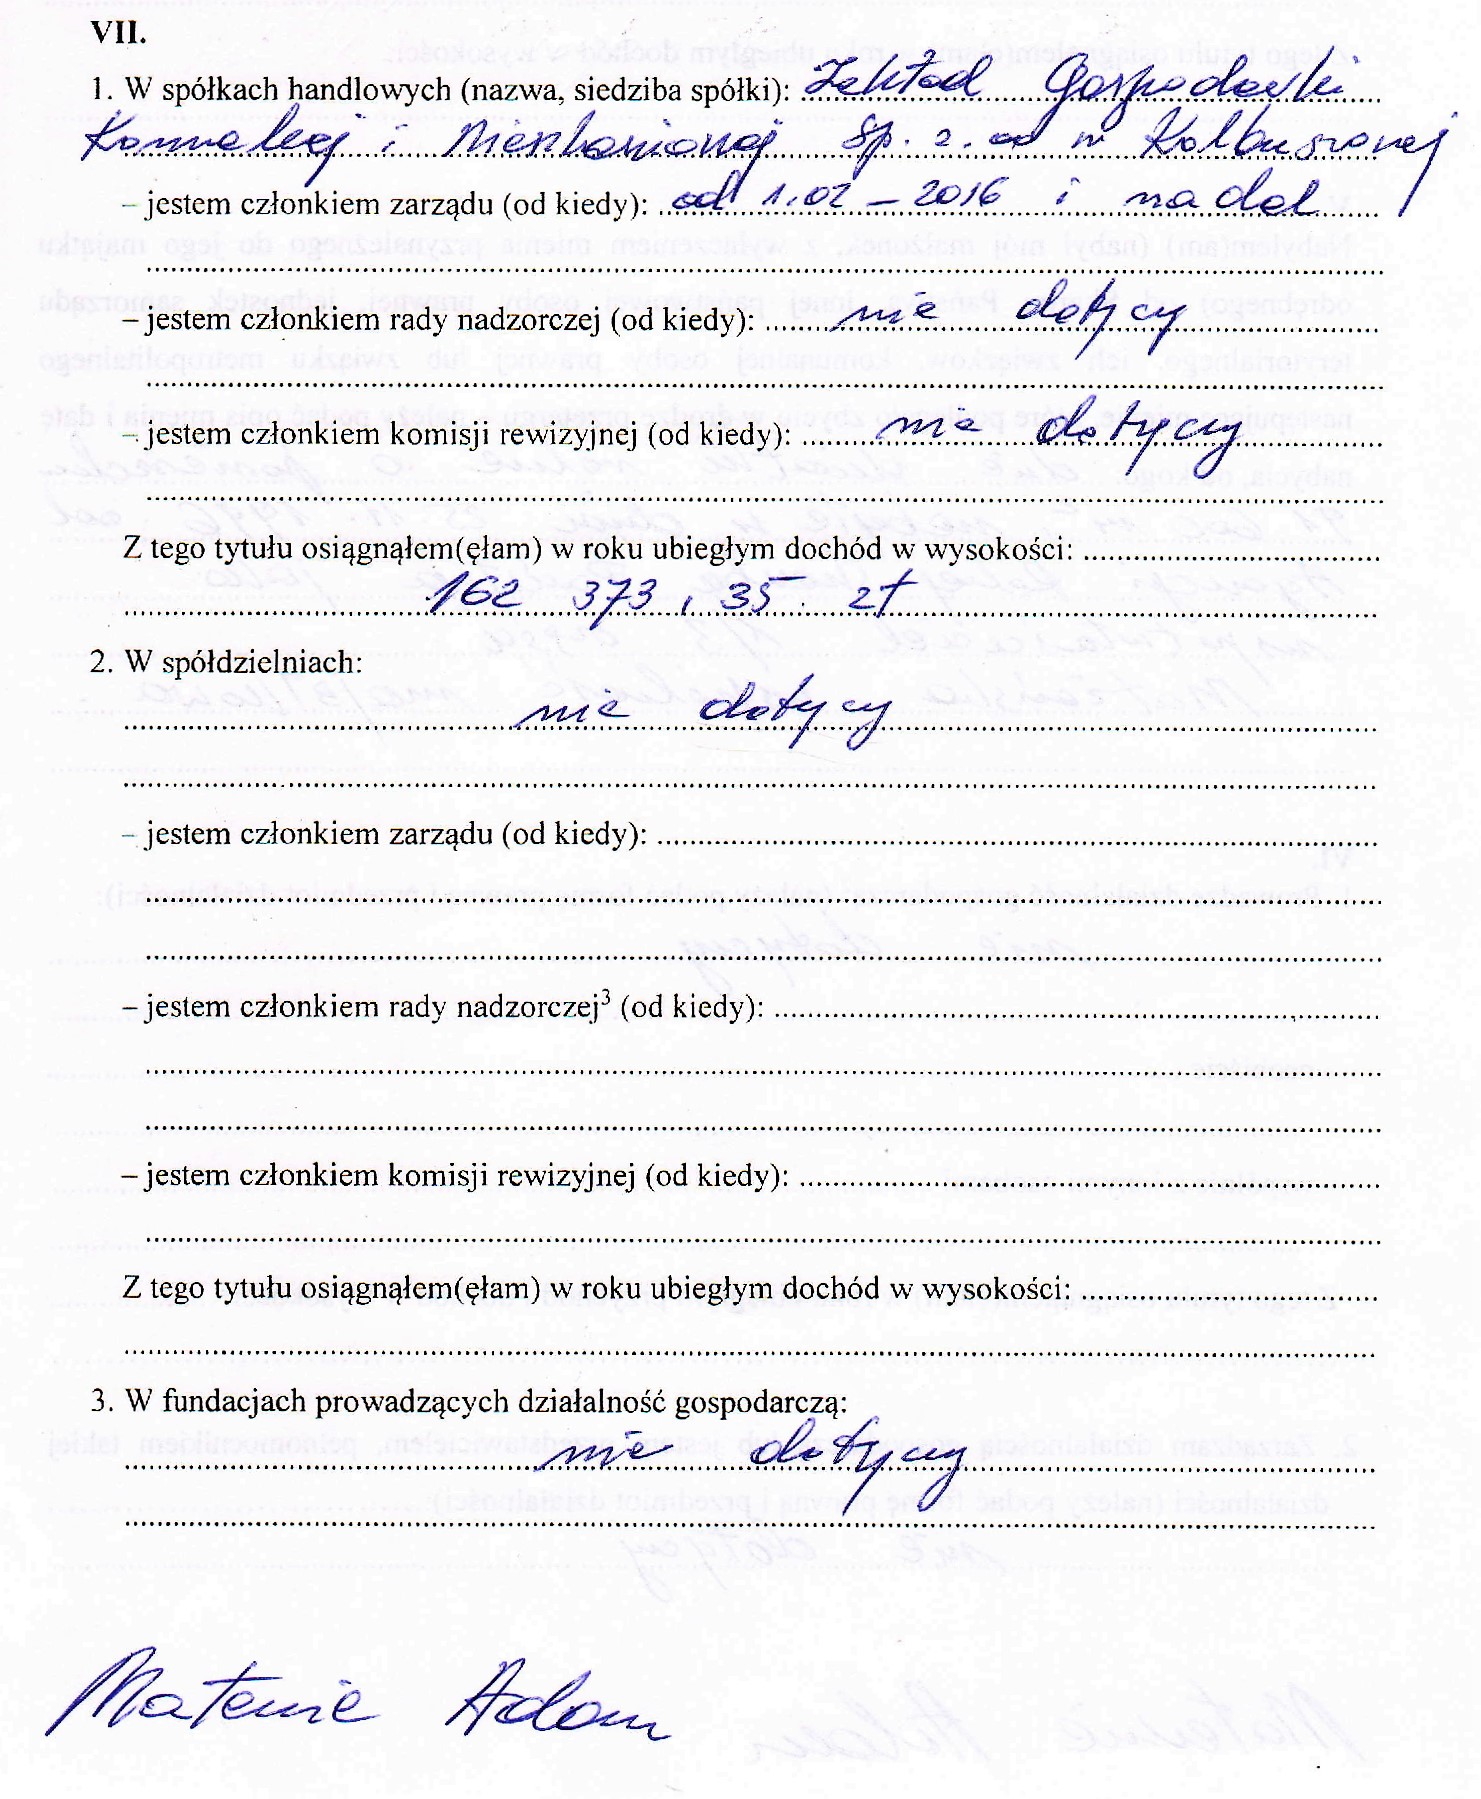 VII.
1. W spółkach handlowych (nazwa, siedziba spółki): Zakład Gospodarki
Komunalnej i Mieszkaniowej Sp. z. oo w Kolbuszowej
– jestem członkiem zarządu (od kiedy): od 1.02 – 2016 i nadal
– jestem członkiem rady nadzorczej (od kiedy): nie dotyczy
– jestem członkiem komisji rewizyjnej (od kiedy): nie dotyczy
Z tego tytułu osiągnąłem(ęłam) w roku ubiegłym dochód w wysokości:
162 373,35 zł
2. W spółdzielniach:
nie dotyczy
– jestem członkiem zarządu (od kiedy):
– jestem członkiem rady nadzorczej³ (od kiedy):
– jestem członkiem komisji rewizyjnej (od kiedy):
Z tego tytułu osiągnąłem(ęłam) w roku ubiegłym dochód w wysokości:
3. W fundacjach prowadzących działalność gospodarczą:
nie dotyczy
Adam